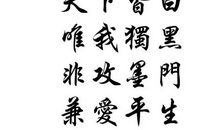 天下皆白
唯我獨黑
非攻墨門
兼愛平生